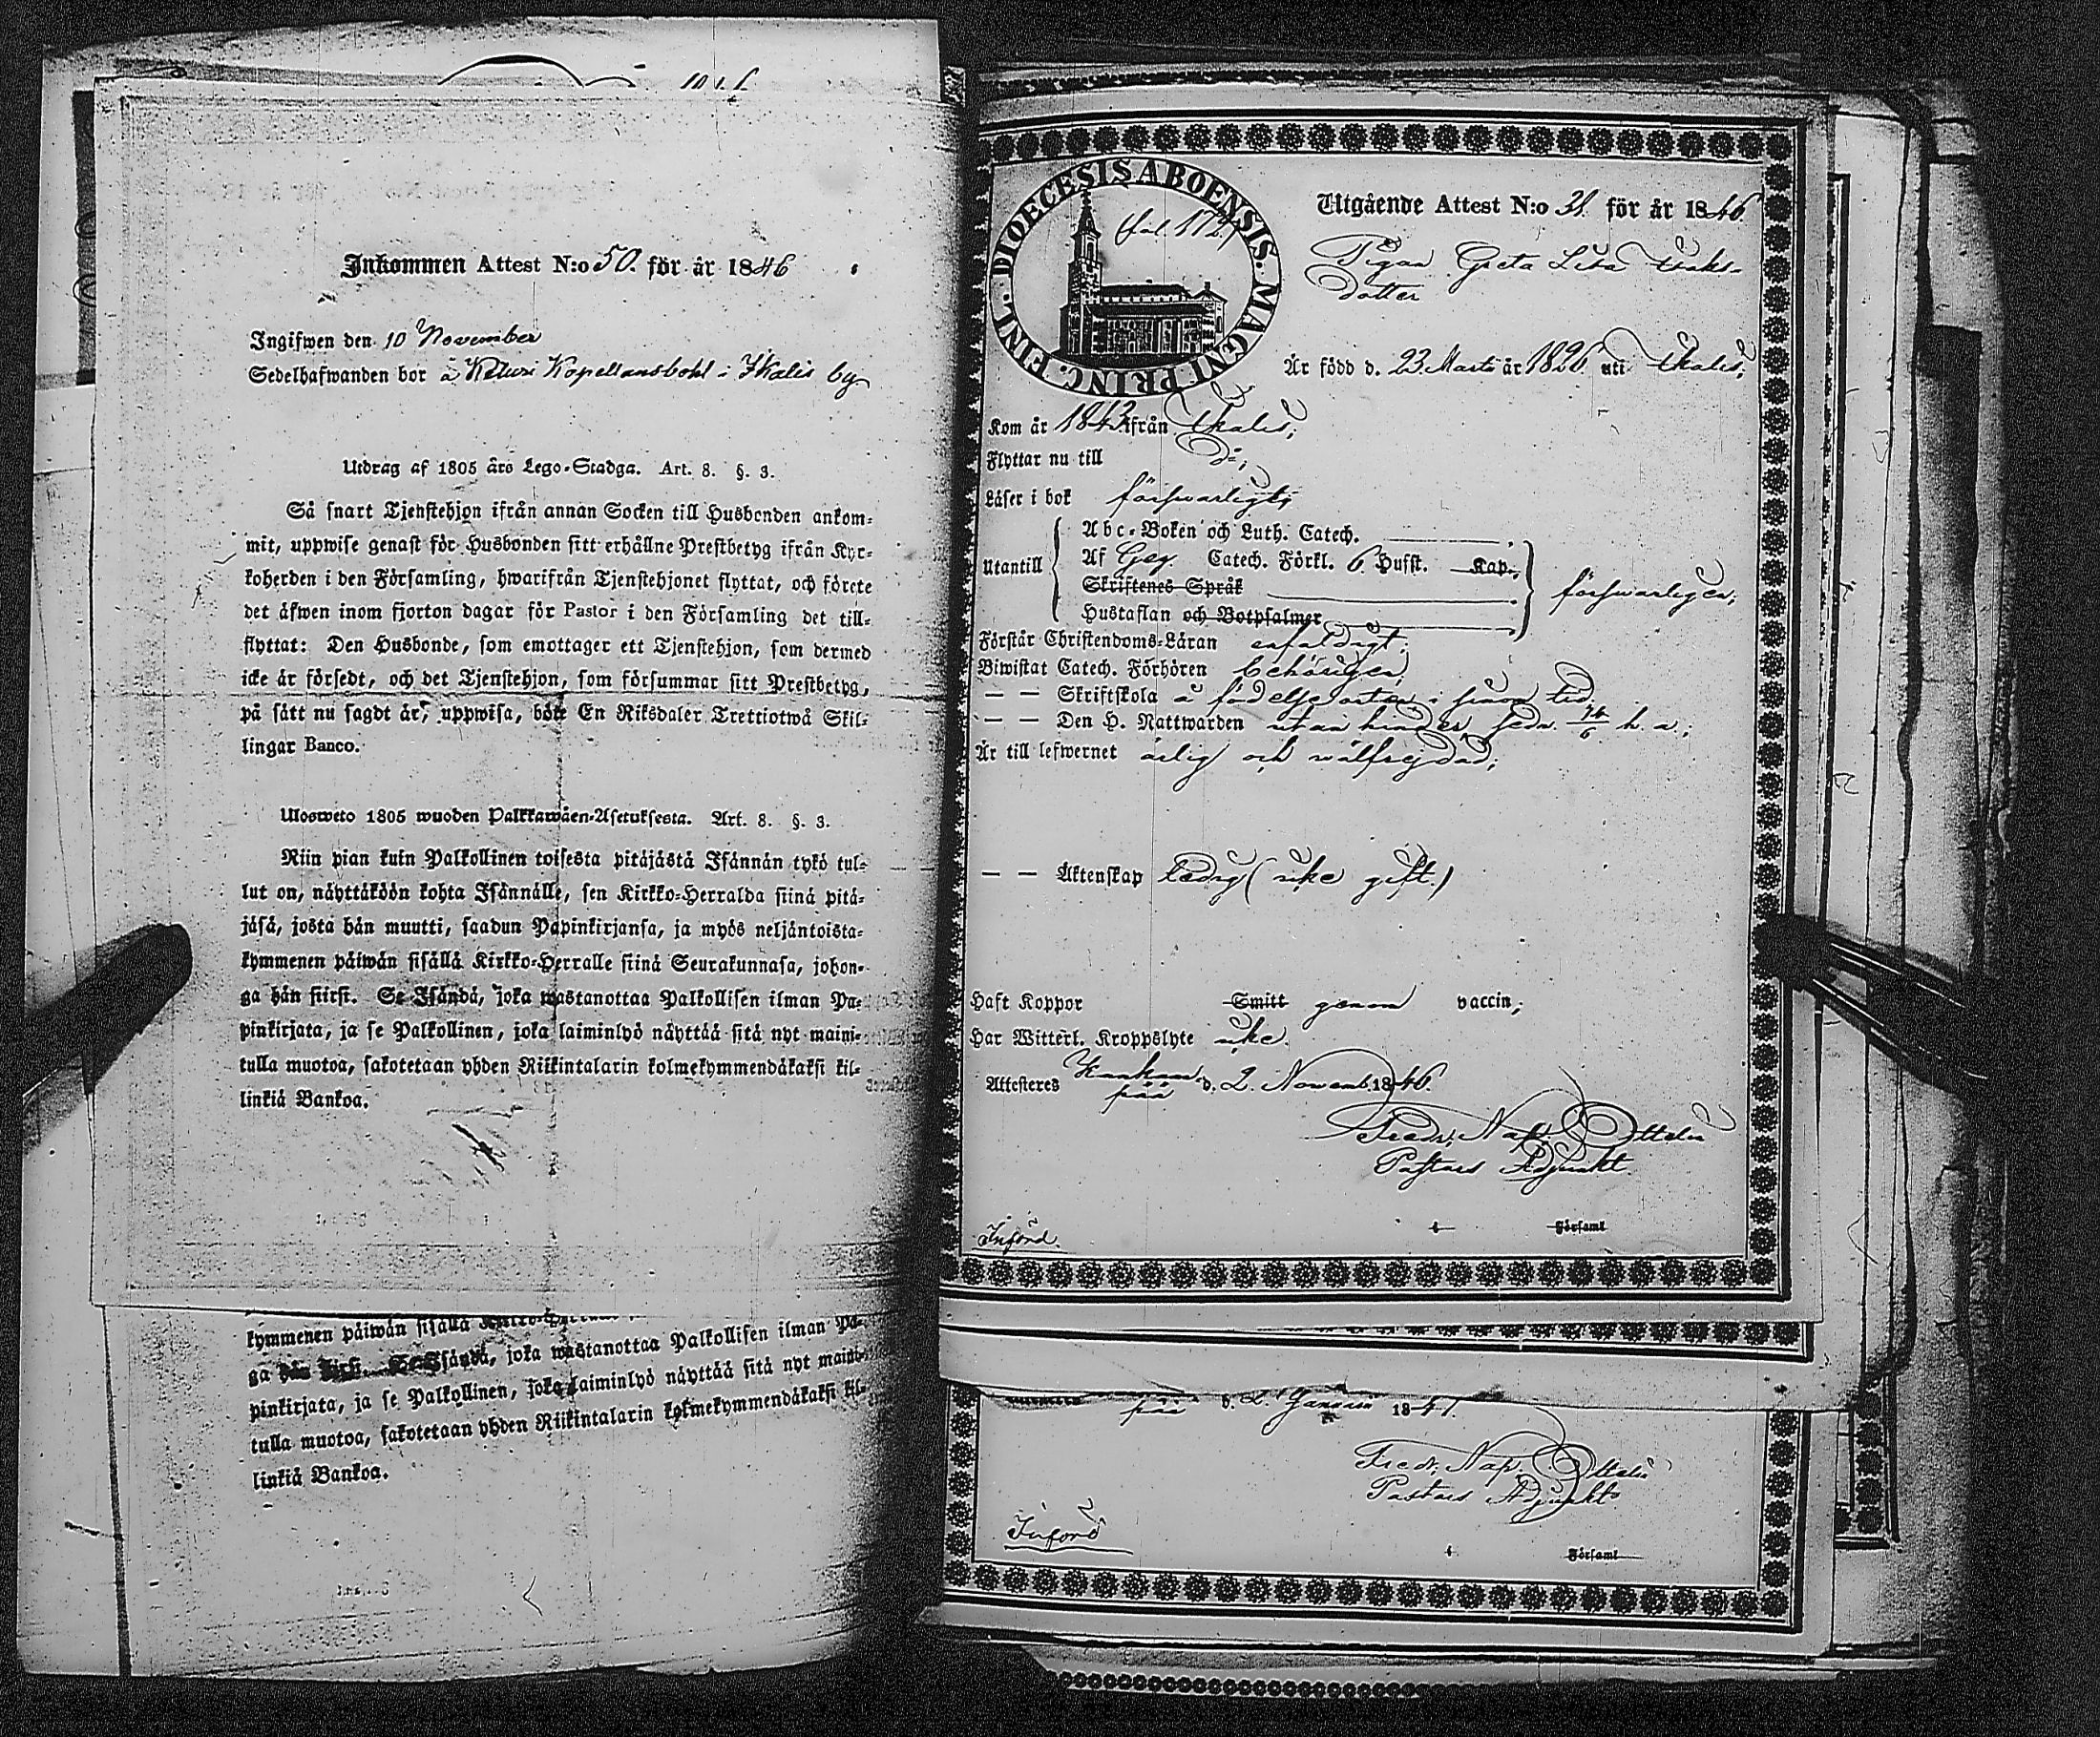 Inkommen Attest N:o 50. för år 1846
Ingifwen den 10 November
Sedelhafwanden bor å Keturi Kapellansbohl i Ikalis by
Utdrag af 1805 års Lego-Stadga. Art. 8. §. 3.
Så snart Tjenstehjon ifrån annan Socken till Husbonden ankom-
mit, uppwise genast för Husbonden sitt erhållne Prestbetyg ifrån Kyr-
koherden i den Församling, hwarifrån Tjenstehjonet flyttat, och förete
det äfwen inom fjorton dagar för Pastor i den Församling det till-
flyttat: Den Husbonde, som emottager ett Tjenstehjon, som dermed
icke är försedt, och det Tjenstehjon, som försummar sitt Prestbetyg,
på sätt nu sagdt är, uppwisa, böte En Riksdaler Trettiotwå Skil-
lingar Banco.
Ulosweto 1805 wuoden Palkkawäen-Asetuksesta. Art. 8. §. 3.
Niin pian kuin Palkollinen toisesta pitäjästä Isännän tykö tul-
lut on, näyttäköön kohta Isännälle, sen Kirkko-Herralda siinä pitä-
jäsä, josta hän muutti, saadun Papinkirjansa, ja myös neljäntoista-
kymmenen päiwän sisällä Kirkko-Herralle siinä Seurakunnasa, johon-
ga hän siirsi. Se Isändä, joka wastanottaa Palkollisen ilman Pa-
pinkirjata, ja se Palkollinen, joka laiminlyö näyttää sitä nyt maini-
tulla muotoa, sakotetaan yhden Riikintalarin kolmekymmendäkaksi kil-
linkiä Bankoa.
kymmenen päiwän sisällä
ga hän siirsi. Se Isändä, joka wastanottaa Palkollisen ilman Pa-
pinkirjata, ja se Palkollinen, joka laiminlyö näyttää sitä nyt maini-
tulla muotoa, sakotetaan yhden Riikintalarin kolmekymmendäkaksi kil-
linkiä Bankoa.
DIOECESIS ABOENSIS. MAGNI PRINC. FINL.
fol. 172.
Utgående Attest N:o 31. för år 1846
Pigan Greta Lisa Isaks-
dotter
Är född d. 23 Martii år 1826 uti Ikalis;
Kom år 1843 ifrån Ikalis;
Flyttar nu till d:o;
Läser i bok förswarligt;
Utantill
Abc-Boken och Luth. Catech.
Af Gez. Catech. Förkl. 6. Hufst. Kap.
Skriftenes Språk
Hustaflan och Botpsalmer
förswarligen;
Förstår Christendoms-Läran enfaldigt;
Biwistat Catech. Förhören behörigen;
— — Skriftskola å födelseorten i sinom tid
— — Den H. Nattwarden utan hinder, sedn. 14/6 h. a.;
Är till lefwernet ärlig och wälfrejdad;
— — Äktenskap ledig (icke gift.)
Haft Koppor Smitt genom vaccin;
Har Witterl. Kroppslyte icke.
Attesteres Kankaan-
pää d. 2. Novemb. 1846.
Fredr. Nap. Ottelin
Pastors Adjunkt.
i Församl
Införd.
pää d. 2. Januarii 1847.
Fredr. Nap. Ottelin
Pastors Adjunkt
Införd
i Församl